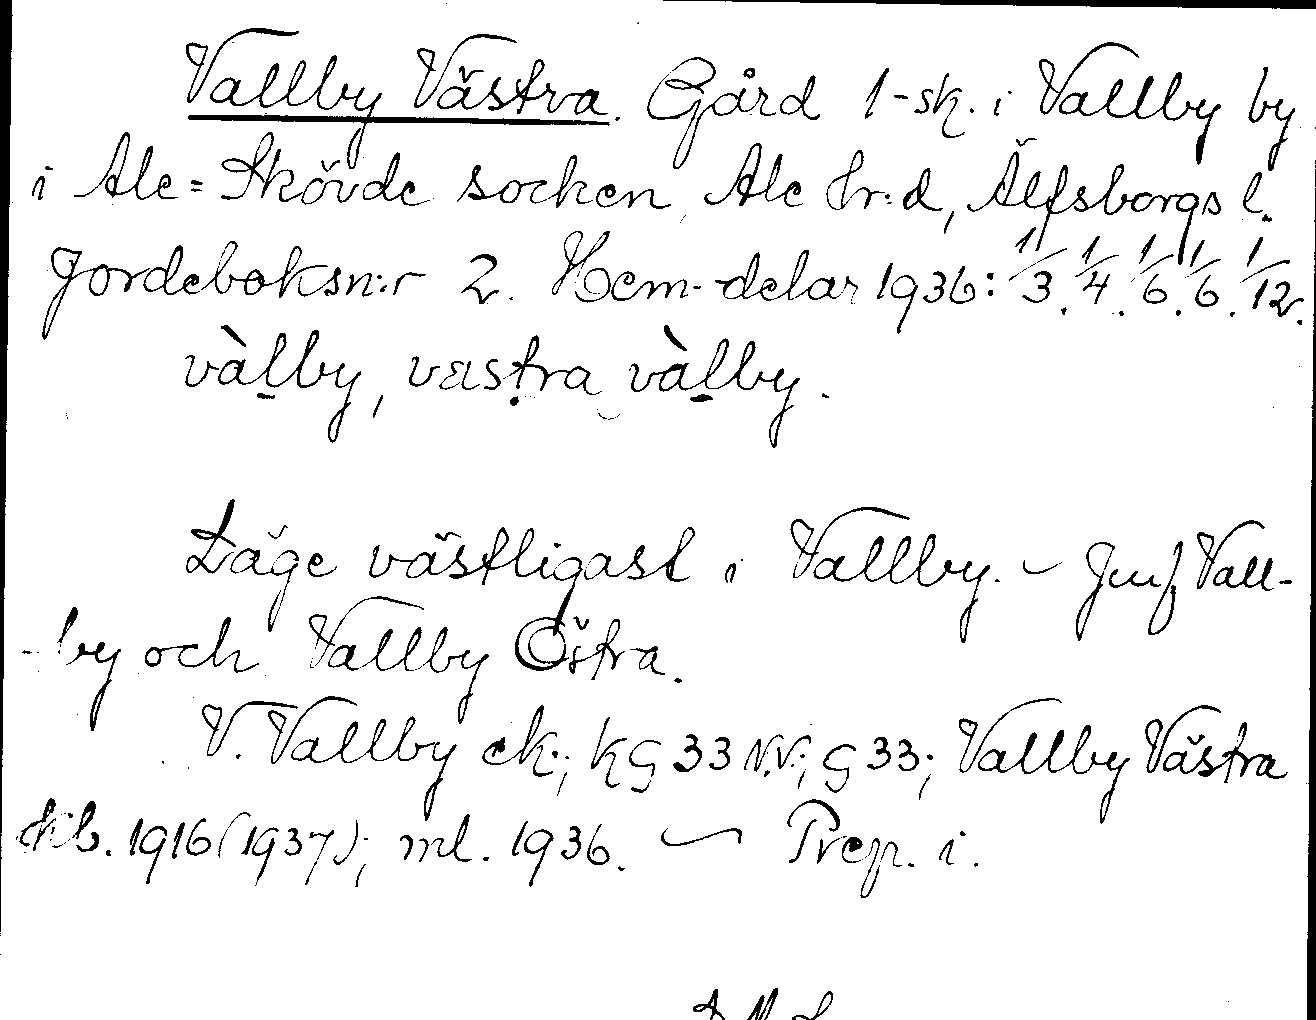 Vallby Västra. Gård 1-sk. i Vallby by
i Ale=Skövde socken, Ale hr:d, Älfsborgs l.
Jordeboksn:r 2. Hem-delar 1936: 1/3. 1/4. 1/6. 1/6. 1/12.
vàl̠by, væsṭra vàl̠by.
Läge västligast i Vallby. – Jmf Vall-
-by och Vallby Östra.
V. Vallby ek.; kg 33 N.V.; g 33; Vallby Västra
kb. 1916 (1937); ml. 1936. — Prep. i.